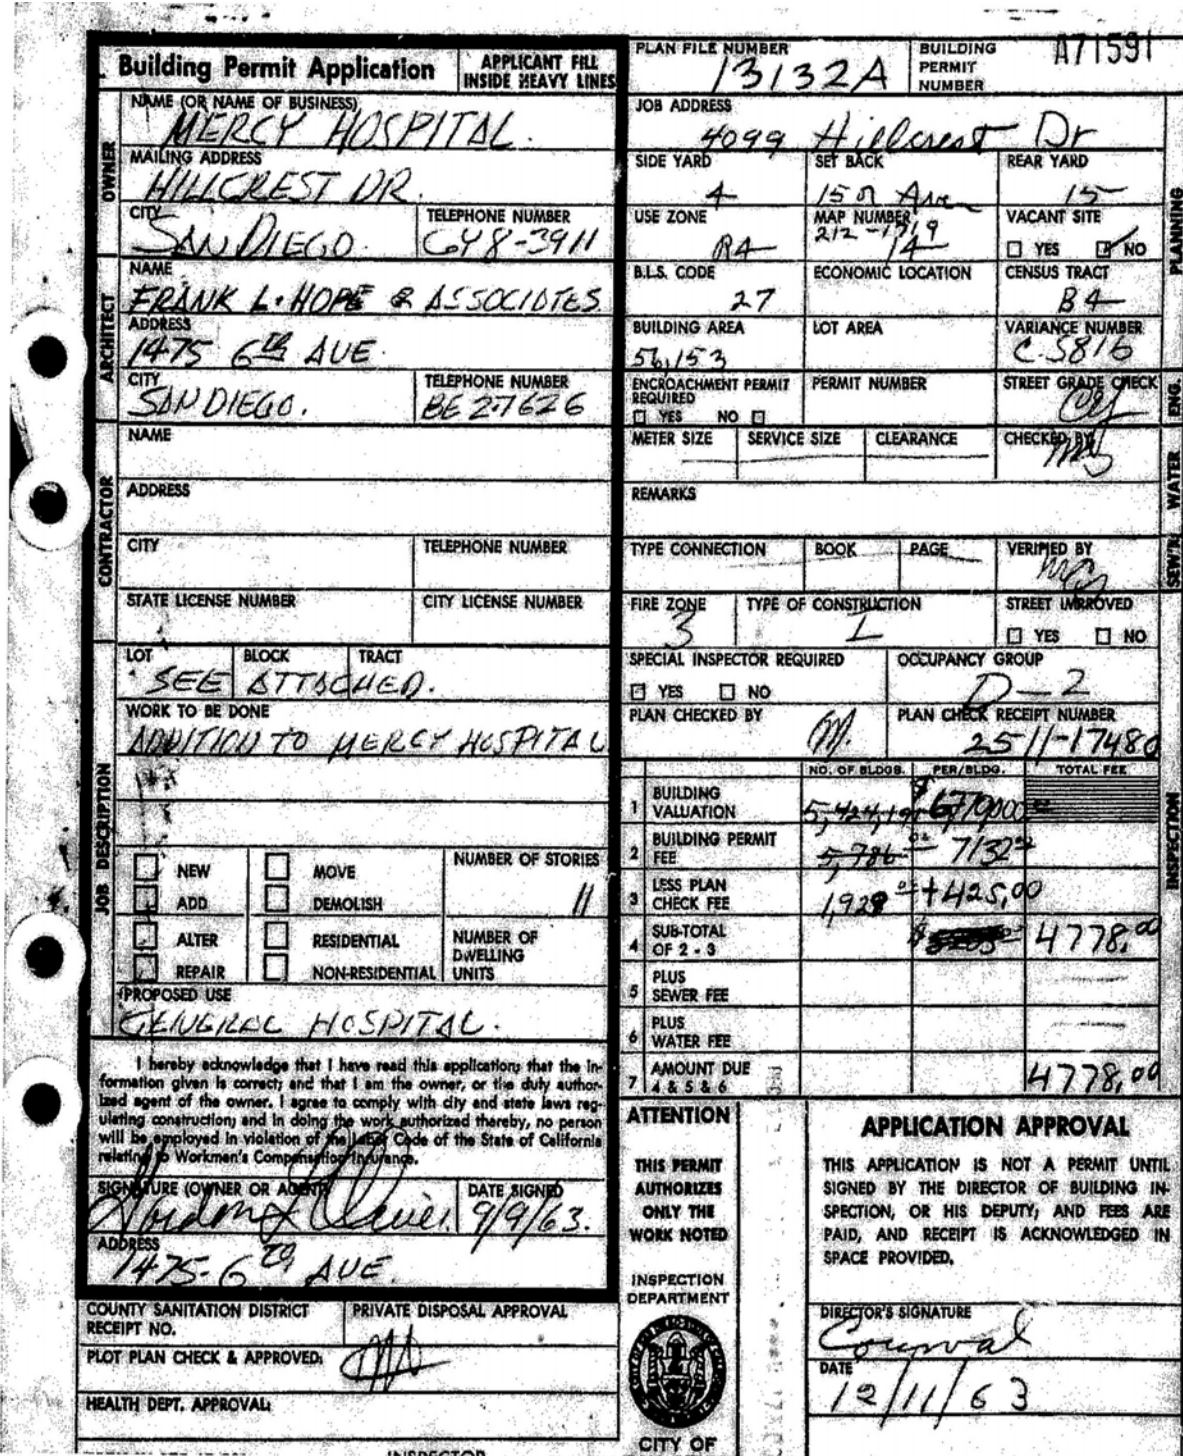 Building Permit Application
APPLICANT FILL
INSIDE HEAVY LINES
OWNER
NAME (OR NAME OF BUSINESS)
MERCY HOSPITAL.
MAILING ADDRESS
HILLCREST DR.
CITY TELEPHONE NUMBER
SAN DIEGO. CY8-3911
ARCHITECT
NAME
FRANK L. HOPE & ASSOCIATES
ADDRESS
1475 6th AVE.
CITY TELEPHONE NUMBER
SAN DIEGO. BE 2-7626
CONTRACTOR
NAME
ADDRESS
CITY TELEPHONE NUMBER
STATE LICENSE NUMBER CITY LICENSE NUMBER
JOB DESCRIPTION
LOT BLOCK TRACT
SEE ATTACHED.
WORK TO BE DONE
ADDITION TO MERCY HOSPITAL
NEW MOVE NUMBER OF STORIES
ADD DEMOLISH 11
ALTER RESIDENTIAL NUMBER OF
DWELLING
REPAIR NON-RESIDENTIAL UNITS
PROPOSED USE
GENERAL HOSPITAL.
I hereby acknowledge that I have read this application; that the in-
formation given is correct; and that I am the owner, or the duly author-
ized agent of the owner. I agree to comply with city and state laws reg-
ulating construction; and in doing the work authorized thereby, no person
will be employed in violation of the Labor Code of the State of California
relating to Workmen's Compensation Insurance.
SIGNATURE (OWNER OR AGENT) DATE SIGNED
9/9/63.
ADDRESS
1475-6th AVE.
COUNTY SANITATION DISTRICT
RECEIPT NO.
PRIVATE DISPOSAL APPROVAL
PLOT PLAN CHECK & APPROVED:
HEALTH DEPT. APPROVAL:
INSPECTOR
PLAN FILE NUMBER
13132A
BUILDING
PERMIT
NUMBER
A71591
JOB ADDRESS
4099 Hillcrest Dr
SIDE YARD SET BACK REAR YARD
4 15 15
USE ZONE MAP NUMBER VACANT SITE
R4 212-1719 YES NO
14
B.L.S. CODE ECONOMIC LOCATION CENSUS TRACT
27 B4
BUILDING AREA LOT AREA VARIANCE NUMBER
56,153 C-5816
ENCROACHMENT PERMIT
REQUIRED
YES NO
PERMIT NUMBER STREET GRADE CHECK
METER SIZE SERVICE SIZE CLEARANCE CHECKED BY
REMARKS
TYPE CONNECTION BOOK PAGE VERIFIED BY
FIRE ZONE TYPE OF CONSTRUCTION STREET IMPROVED
3 I YES NO
SPECIAL INSPECTOR REQUIRED OCCUPANCY GROUP
YES NO D-2
PLAN CHECKED BY PLAN CHECK RECEIPT NUMBER
M. 2511-17480
PLANNING
ENG.
WATER
SEWER
INSPECTION
NO. OF BLDGS. PER/BLDG. TOTAL FEE
1 BUILDING
VALUATION
2 BUILDING PERMIT
FEE 5,786 7132
3 LESS PLAN
CHECK FEE 1,928 +425,00
4 SUB-TOTAL
OF 2 - 3 4778,00
5 PLUS
SEWER FEE
6 PLUS
WATER FEE
7 AMOUNT DUE
4 & 5 & 6 4778,00
ATTENTION
THIS PERMIT
AUTHORIZES
ONLY THE
WORK NOTED
INSPECTION
DEPARTMENT
CITY OF
APPLICATION APPROVAL
THIS APPLICATION IS NOT A PERMIT UNTIL
SIGNED BY THE DIRECTOR OF BUILDING IN-
SPECTION, OR HIS DEPUTY; AND FEES ARE
PAID, AND RECEIPT IS ACKNOWLEDGED IN
SPACE PROVIDED.
DIRECTOR'S SIGNATURE
DATE
12/11/63